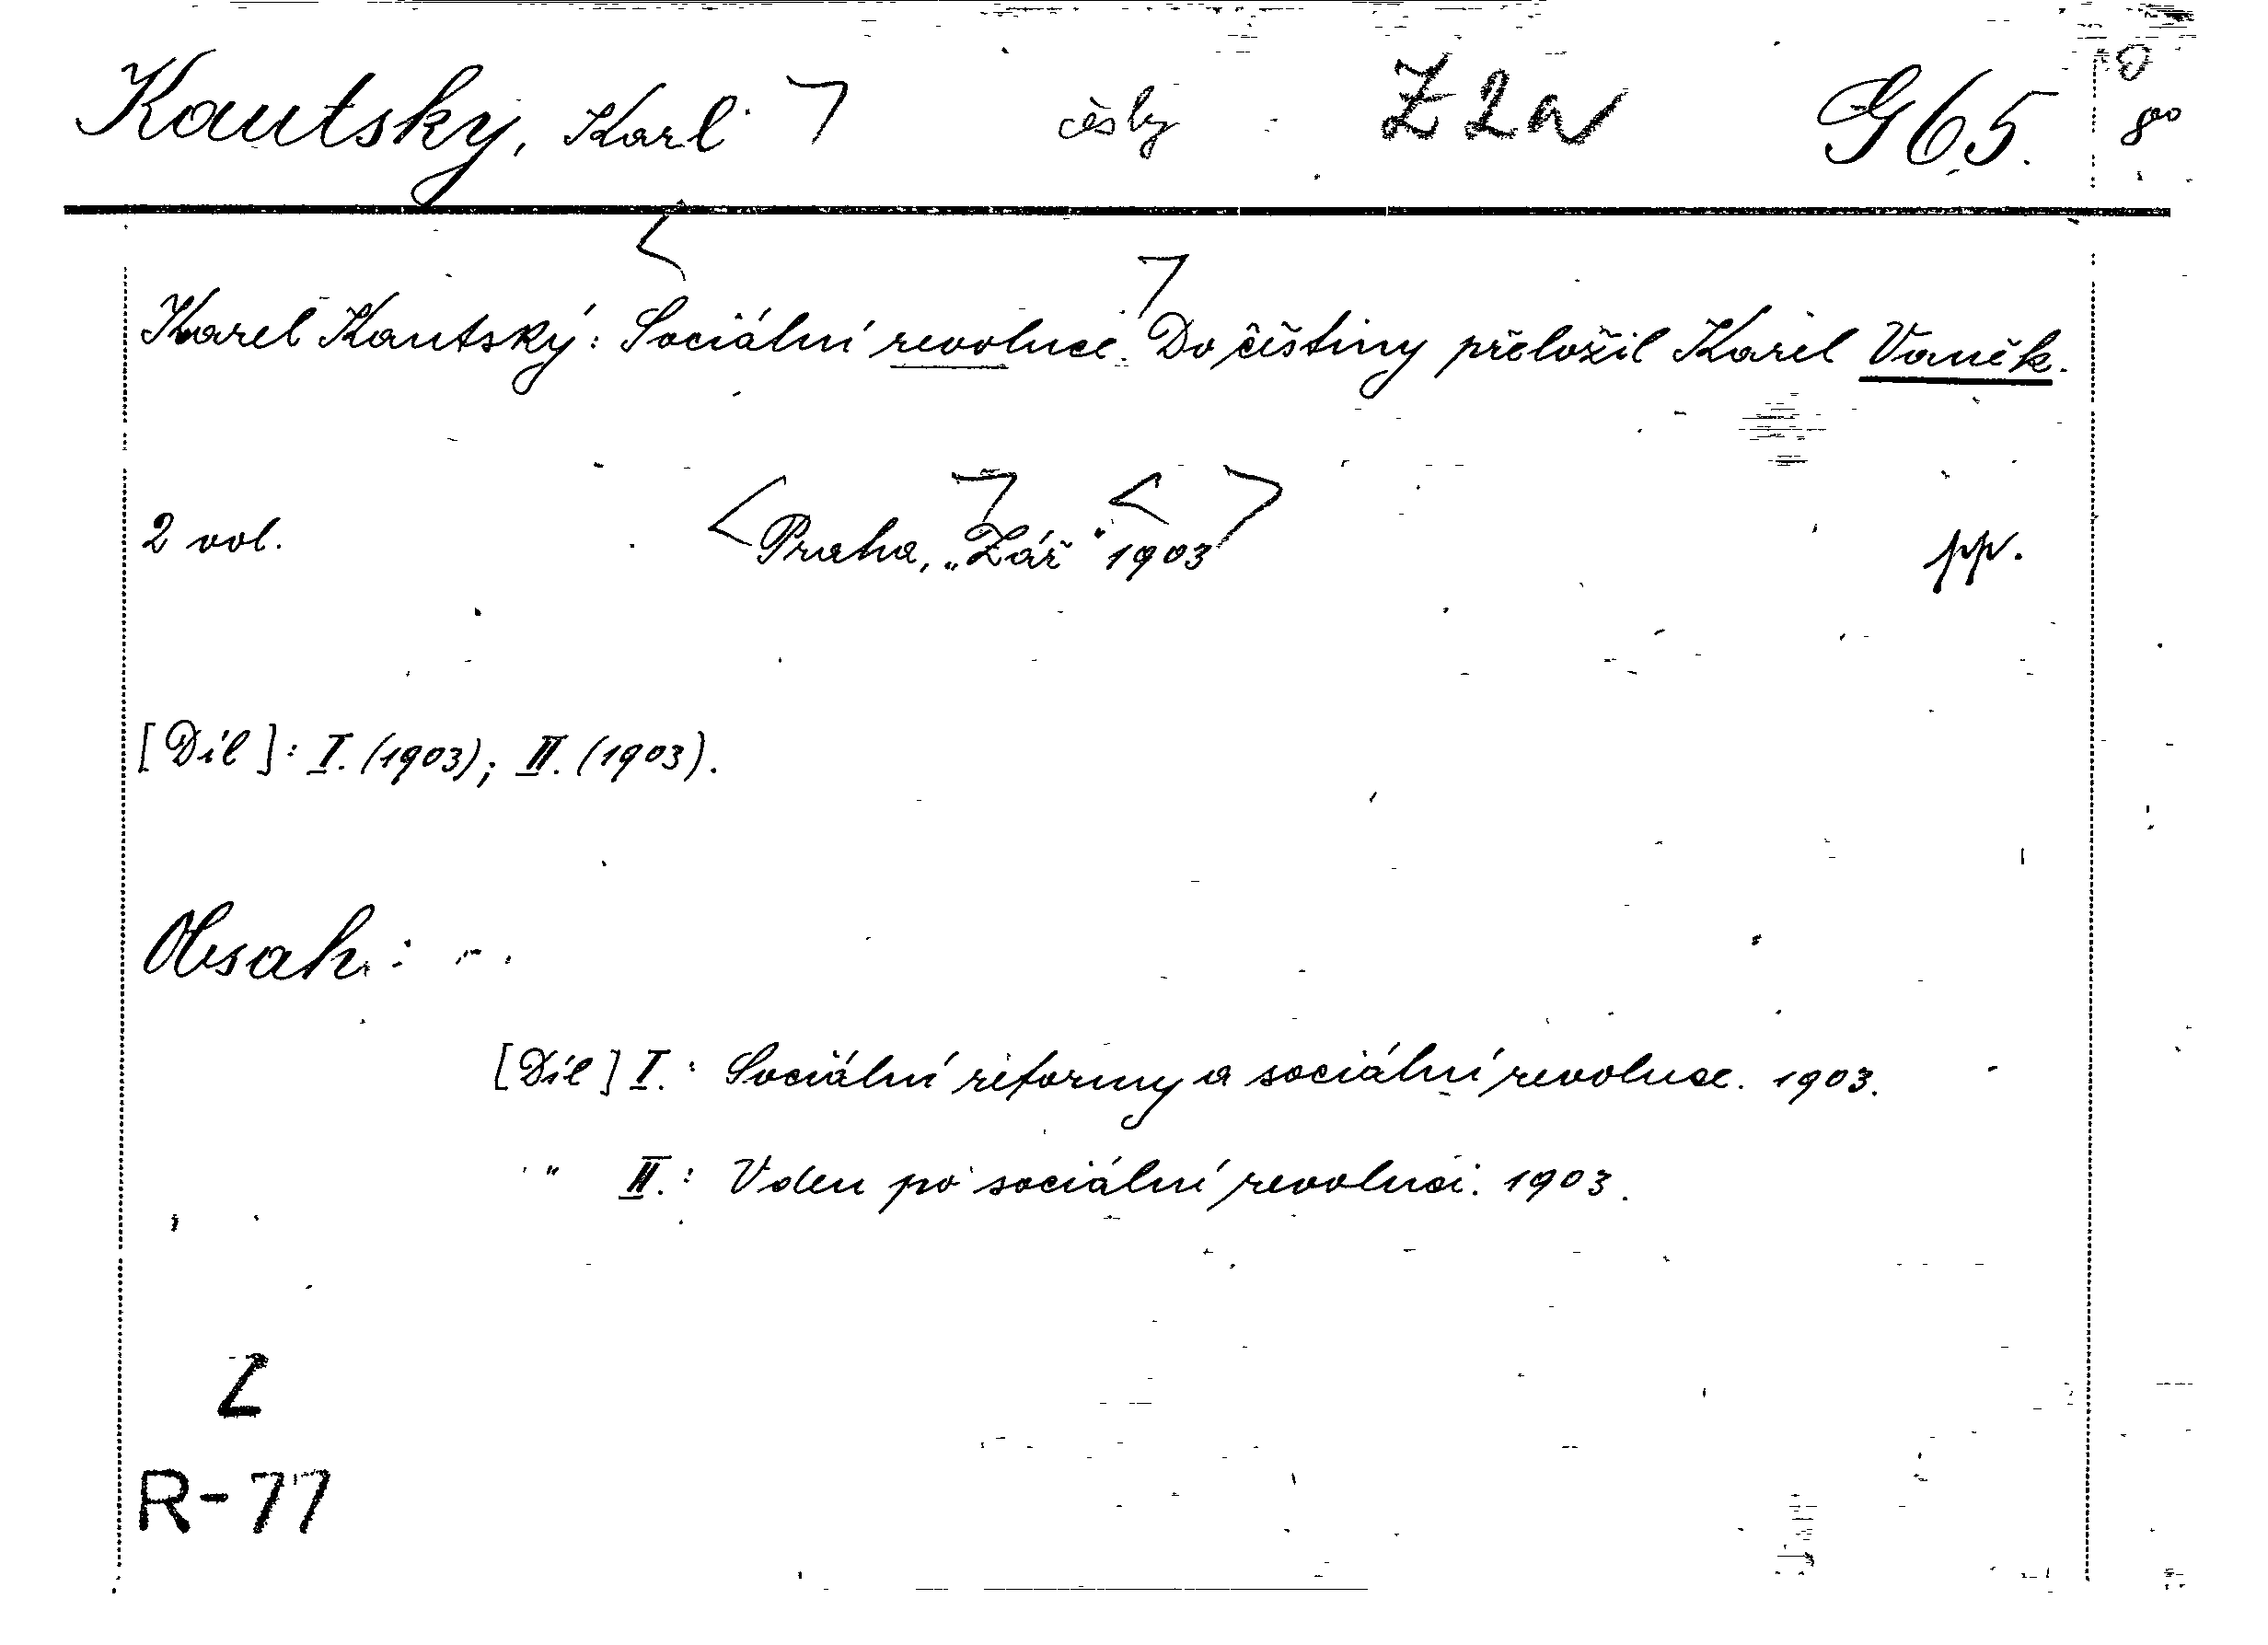 Kautsky, Karl česky Z2a G65. 8°°
Karel Kautský: Sociální revoluce. Do češtiny přeložil Karel Vaněk.
2 vol. Praha, „Zář“ 1903 pp.
[Díl]: I. (1903); II. (1903).
Obsah:
[Díl] I.: Sociální reformy a sociální revoluce. 1903.
" II.: V den po sociální revoluci. 1903.
Z
R-77